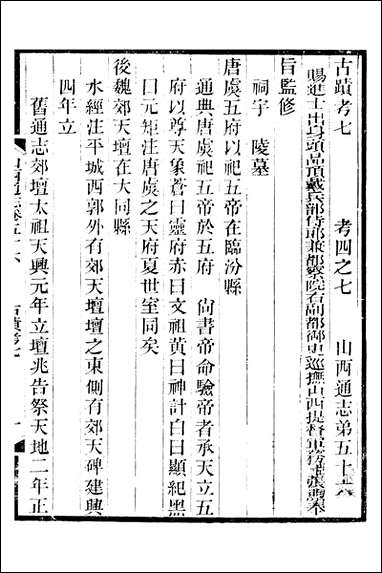 古蹟考七　考四之七　山西通志第五十六
賜進士出身頭品頂戴兵部侍郎兼都察院右副都御史巡撫山西提督軍務張煦奉
旨監修
祠宇　陵墓
唐虞五府以祀五帝在臨汾縣
通典唐虞祀五帝於五府　尚書帝命驗帝者承天立五
府以尊天象蒼曰靈府赤曰文祖黃曰神計白曰顯紀黑
曰元矩注唐虞之天府夏世室同矣
後魏郊天壇在大同縣
水經注平城西郭外有郊天壇壇之東側有郊天碑建興
四年立
舊通志郊壇太祖天興元年立壇兆告祭天地二年正